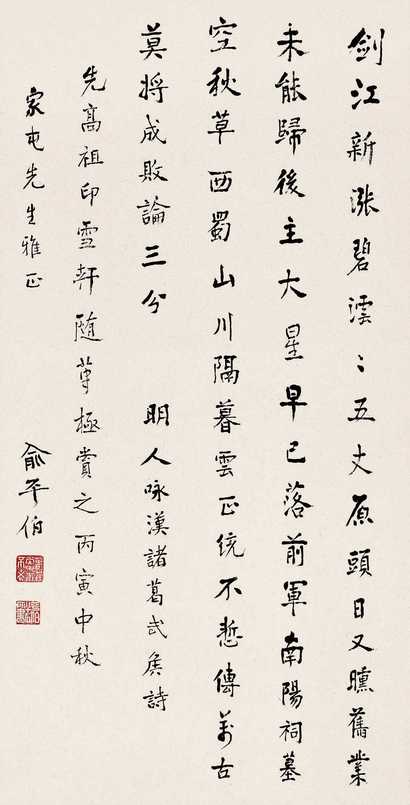 劍江新漲碧澐〻五丈原頭日又曛舊業
未能歸後主大星早已落前軍南陽祠墓
空秋草西蜀山川隔暮雲正統不慙傳萬古
莫將成敗論三分 明人咏漢諸葛武侯詩
先高祖印雪軒隨筆極賞之丙寅中秋
家屯先生雅正
俞平伯